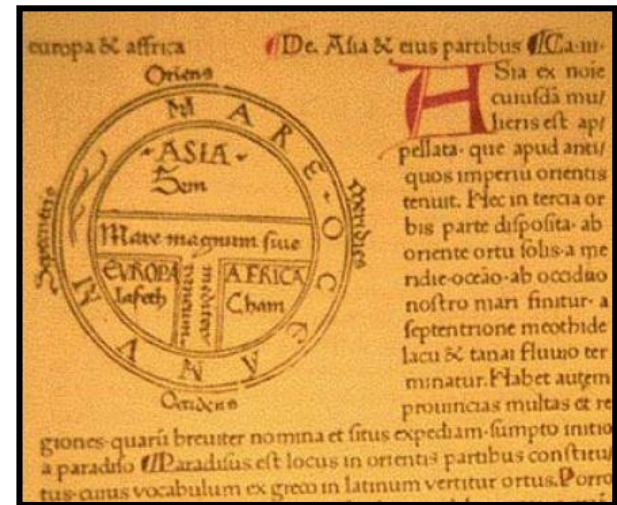 europa & affrica
¶De. Asia & eius partibus ¶Ca.iii.
Oriens
MARE OCEANUM
Septentrio
Meridies
ASIA
Sem
Mare magnum siue
EVROPA
Iafeth
mediterraneum
AFRICA
Cham
Occidens
ASia ex noie
cuiusdā mu/
lieris est ap/
pellata. que apud anti/
quos imperiū orientis
tenuit. Hec in tercia or
bis parte disposita. ab
oriente ortu solis. a me
ridie. oceāo. ab occiduo
nostro mari finitur. a
septentrione meothide
lacu & tanai fluuio ter
minatur. Habet autem
prouincias multas et re
giones. quarū breuiter nomina et situs expediam. sumpto initio
a paradiso ¶Paradisus est locus in orientis partibus constitu/
tus. cuius vocabulum ex greco in latinum vertitur ortus. Porro